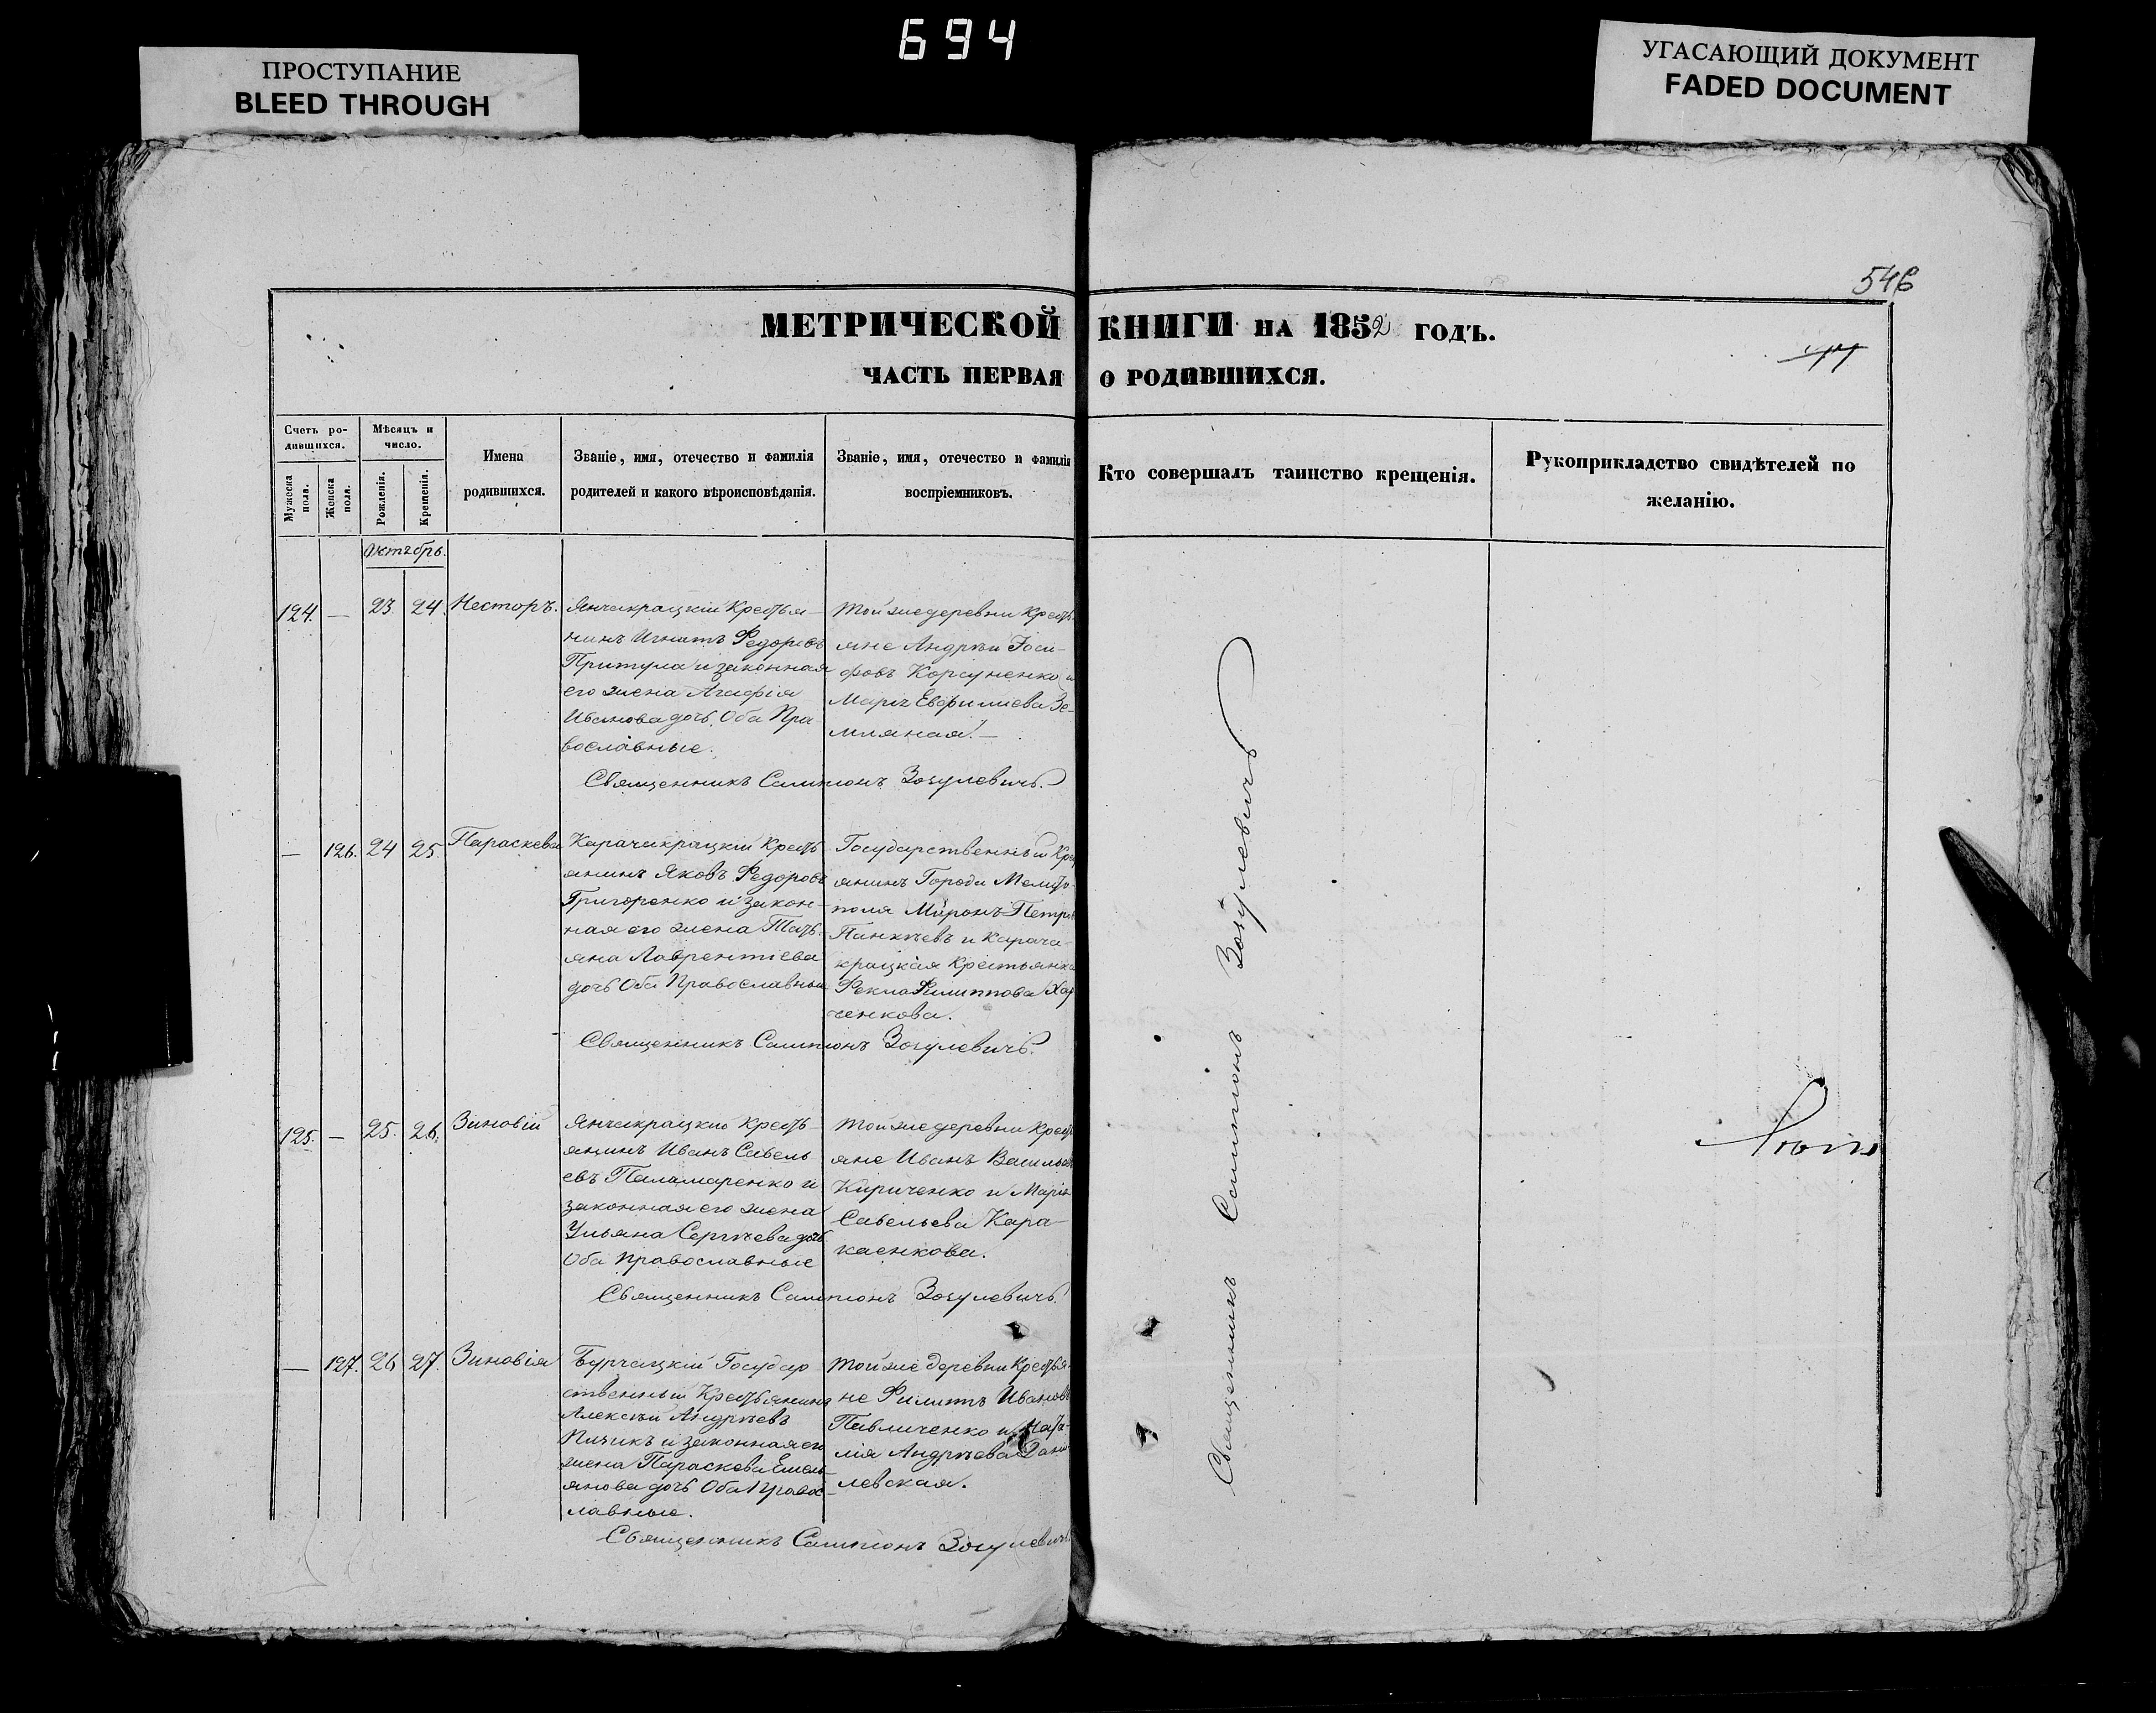 694
ПРОСТУПАНИЕ
BLEED THROUGH
УГАСАЮЩИЙ ДОКУМЕНТ
FADED DOCUMENT
546
МЕТРИЧЕСКОЙ КНИГИ НА 1852 ГОДЪ.
ЧАСТЬ ПЕРВАЯ О РОДИВШИХСЯ.
Счетъ ро-
дившихся.
Мужеска пола.
Женска пола.
Мѣсяцъ и
число.
Рожденія.
Крещенія.
Имена
родившихся.
Званіе, имя, отечество и фамилія
родителей и какого вѣроисповѣданія.
Званіе, имя, отечество и фамилія
воспріемниковъ.
Кто совершалъ таинство крещенія.
Рукоприкладство свидѣтелей по
желанію.
Октябрь.
124. — 23. 24. Несторъ.
Янчикрацкій Крестья-
нинъ Игнатъ Федоровъ
Притула и законная
его жена Агафія
Иванова дочь. Оба Пра
вославные.
Той же деревни Кресть
яне Андрей Іоси-
фовъ Корсуненко и
Марія Евфиміева Зе-
мляная. —
Священникъ Сампсонъ Зозулевичъ.
— 126. 24 25. Параскева
Карачикрацкій Кресть
янинъ Яковъ Федоровъ
Григоренко и закон-
ная его жена Тать-
яна Лаврентіева
дочь Оба Православные
Государственный Кре
янинъ Города Мелито-
поля Миронъ Петров
Панкѣевъ и Карача-
крацкая Крестьянка
Фекла Филиппова Хар
ченкова.
Священникъ Сампсонъ Зозулевичъ.
125. — 25. 26. Зиновій
Янчикрацкій Кресть-
янинъ Иванъ Савель
евъ Паламаренко и
законная его жена
Ульяна Сергѣева дочь
Оба Православные
Той же деревни Кресть
яне Иванъ Васильев
Кириченко и Марія
Савельева Кара-
каенкова.
Священникъ Сампсонъ Зозулевичъ.
— 127. 26 27. Зиновія
Бурчацкій Государ
ственный Крестьянинъ
Алексѣй Андрѣевъ
Пичикъ и законная его
жена Параскева Емель-
янова дочь Оба Правос-
лавные.
Той же деревни Крестья-
не Филипъ Ивановъ
Павличенко и Ната-
лія Андрѣева Дани
левская.
Священникъ Сампсонъ Зозулевичъ.
Священникъ Сампсонъ Зозулевичъ